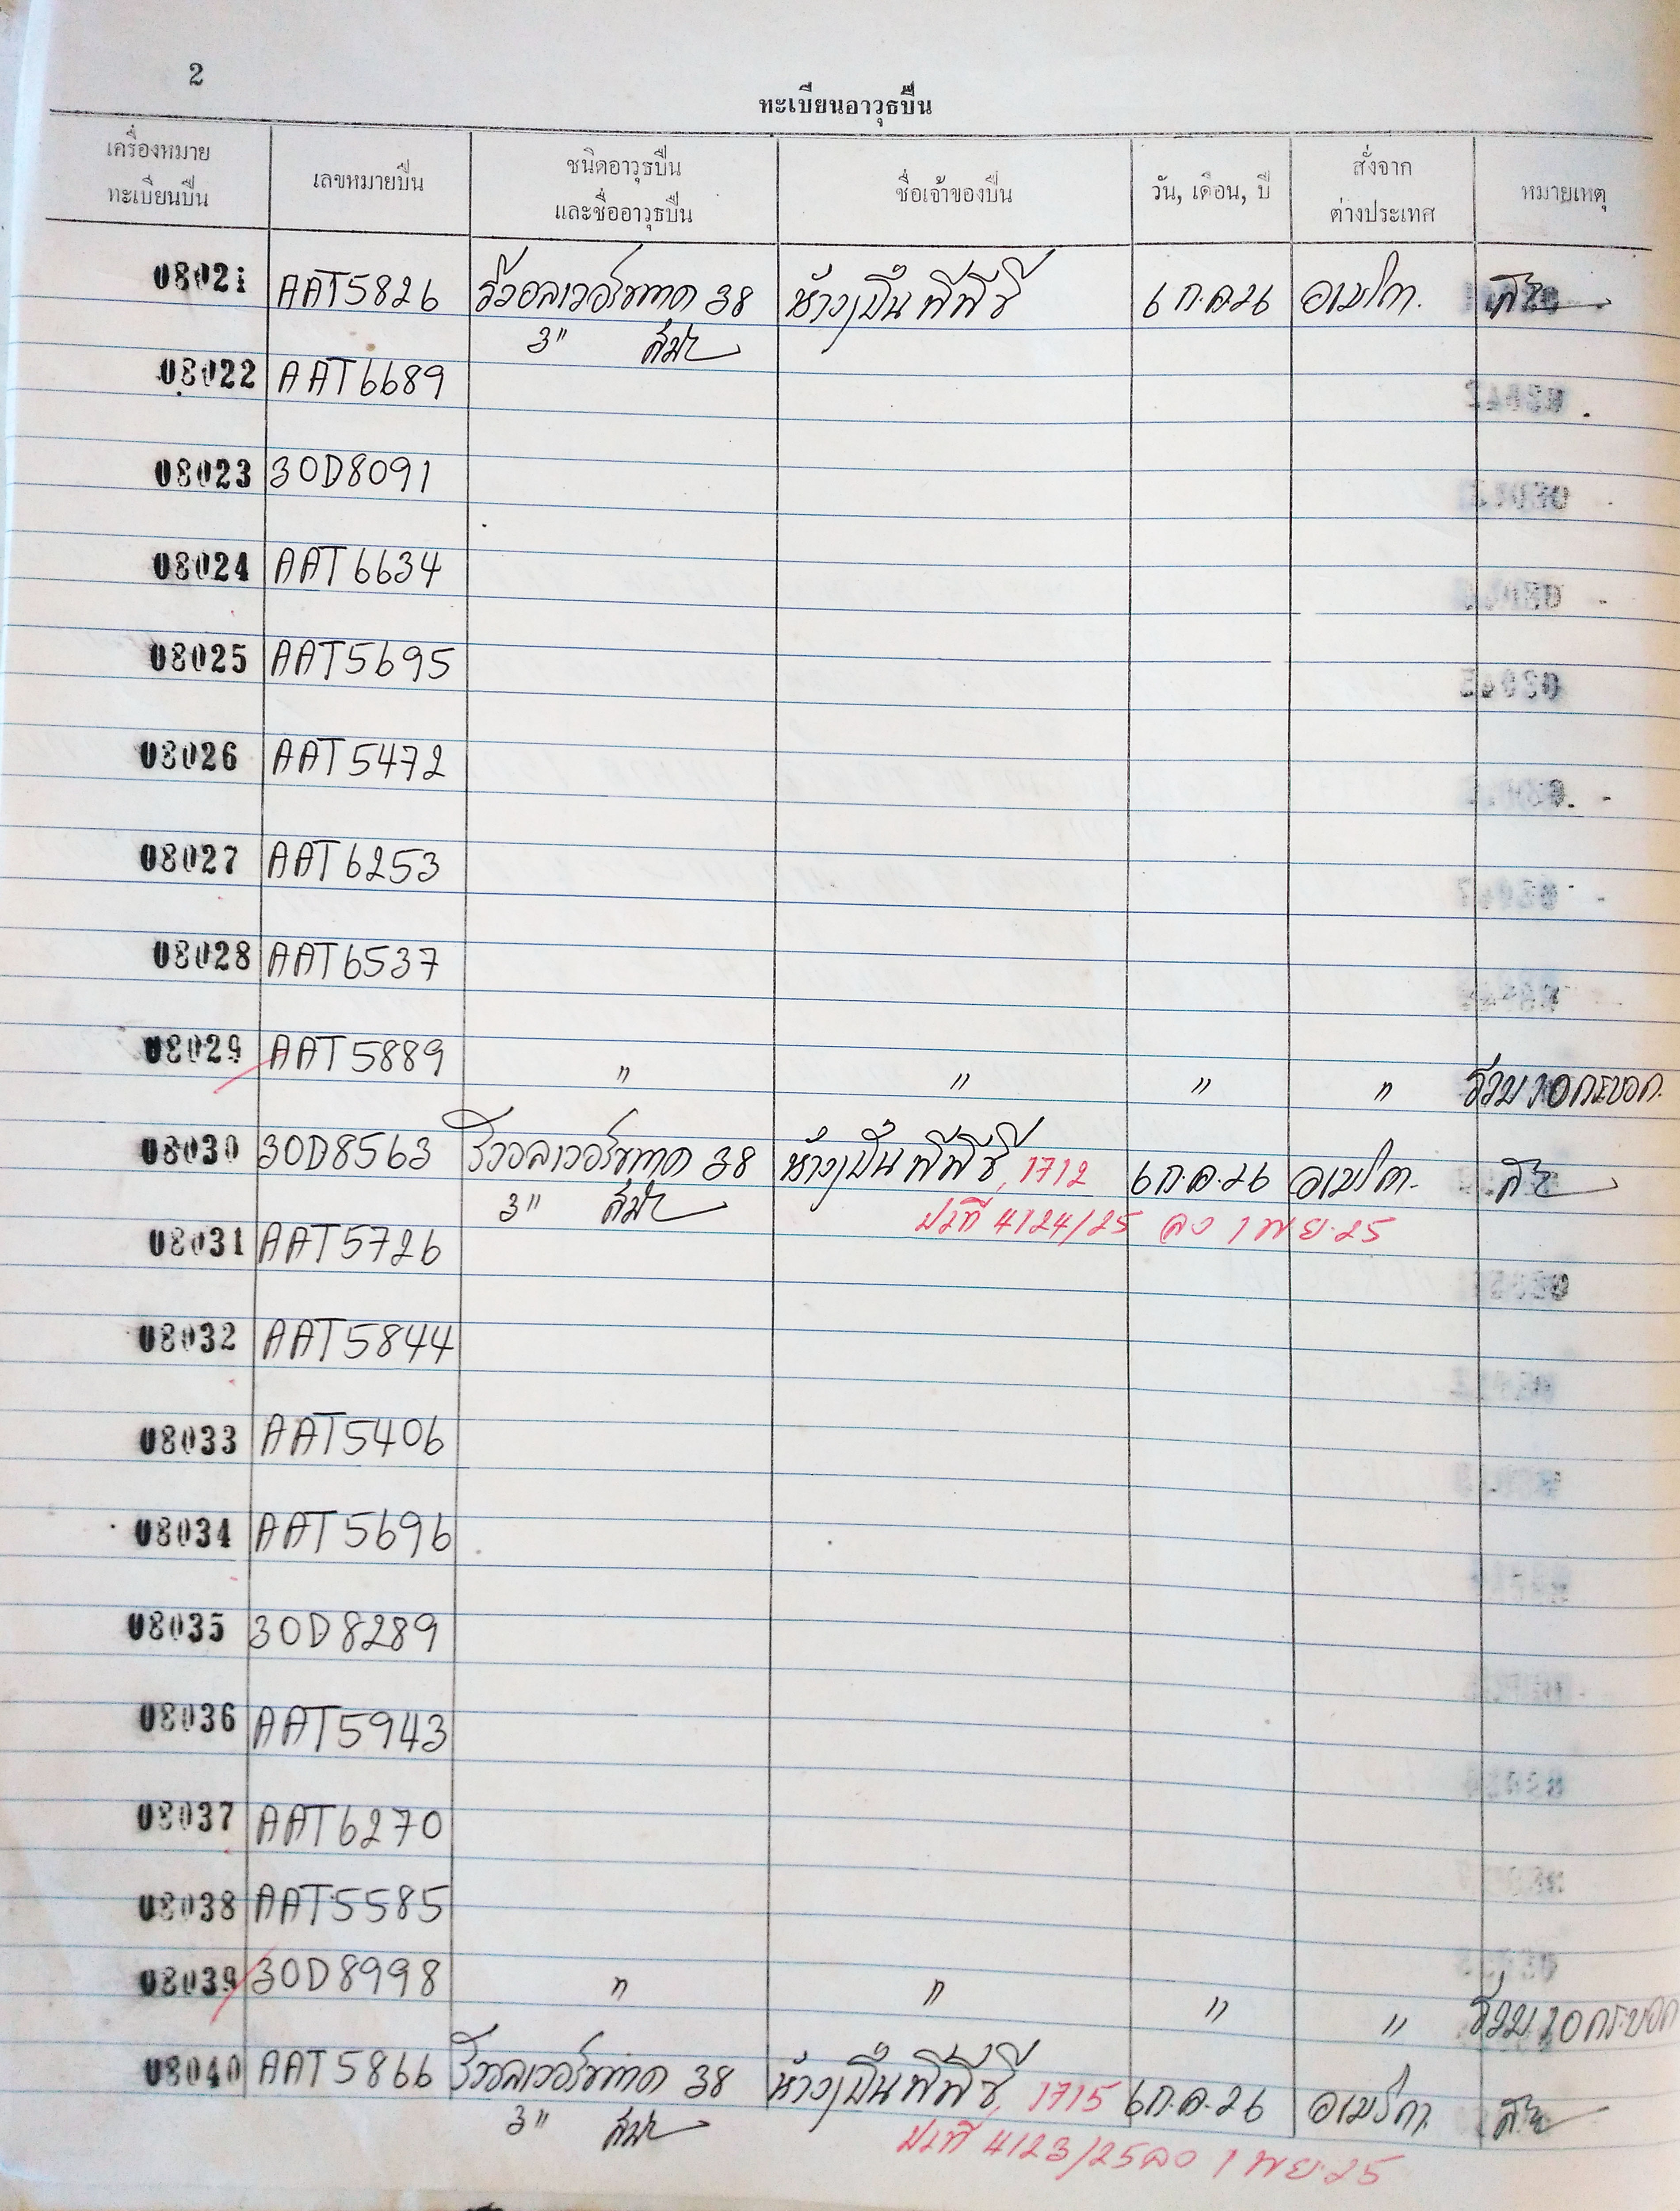 2
ทะเบียนอาวุธปืน
เครื่องหมาย
ทะเบียนปืน
เลขหมายปืน
ชนิดอาวุธปืน
และชื่ออาวุธปืน
ชื่อเจ้าของปืน
วัน, เดือน, ปี
สั่งจาก
ต่างประเทศ
หมายเหตุ
08021 AAT5826 รีวอลเวอร์ขนาด 38 ห้างปืน พีพีซี 6 ก.ค.26 อเมริกา.
3"
08022 AAT6689
08023 30D8091
08024 AAT6634
08025 AAT5695
08026 AAT5472
08027 AAT6253
08028 AAT6537
08029 AAT5889 " " " " รวม 10 กระบอก.
08030 30D8563 รีวอลเวอร์ขนาด 38 ห้างปืน พีพีซี 1712 6 ก.ค.26 อเมริกา.
3" ปท์ที่ 4124/25 ลง 1 พ.ย.25
08031 AAT5726
08032 AAT5844
08033 AAT5406
08034 AAT5696
08035 30D8289
08036 AAT5943
08037 AAT6270
08038 AAT5585
08039 30D8998 " " " " รวม 10 กระบอก
08040 AAT5866 รีวอลเวอร์ขนาด 38 ห้างปืน พีพีซี 1715 6 ก.ค.26 อเมริกา.
3" ปท์ที่ 4123/25 ลง 1 พ.ย.25